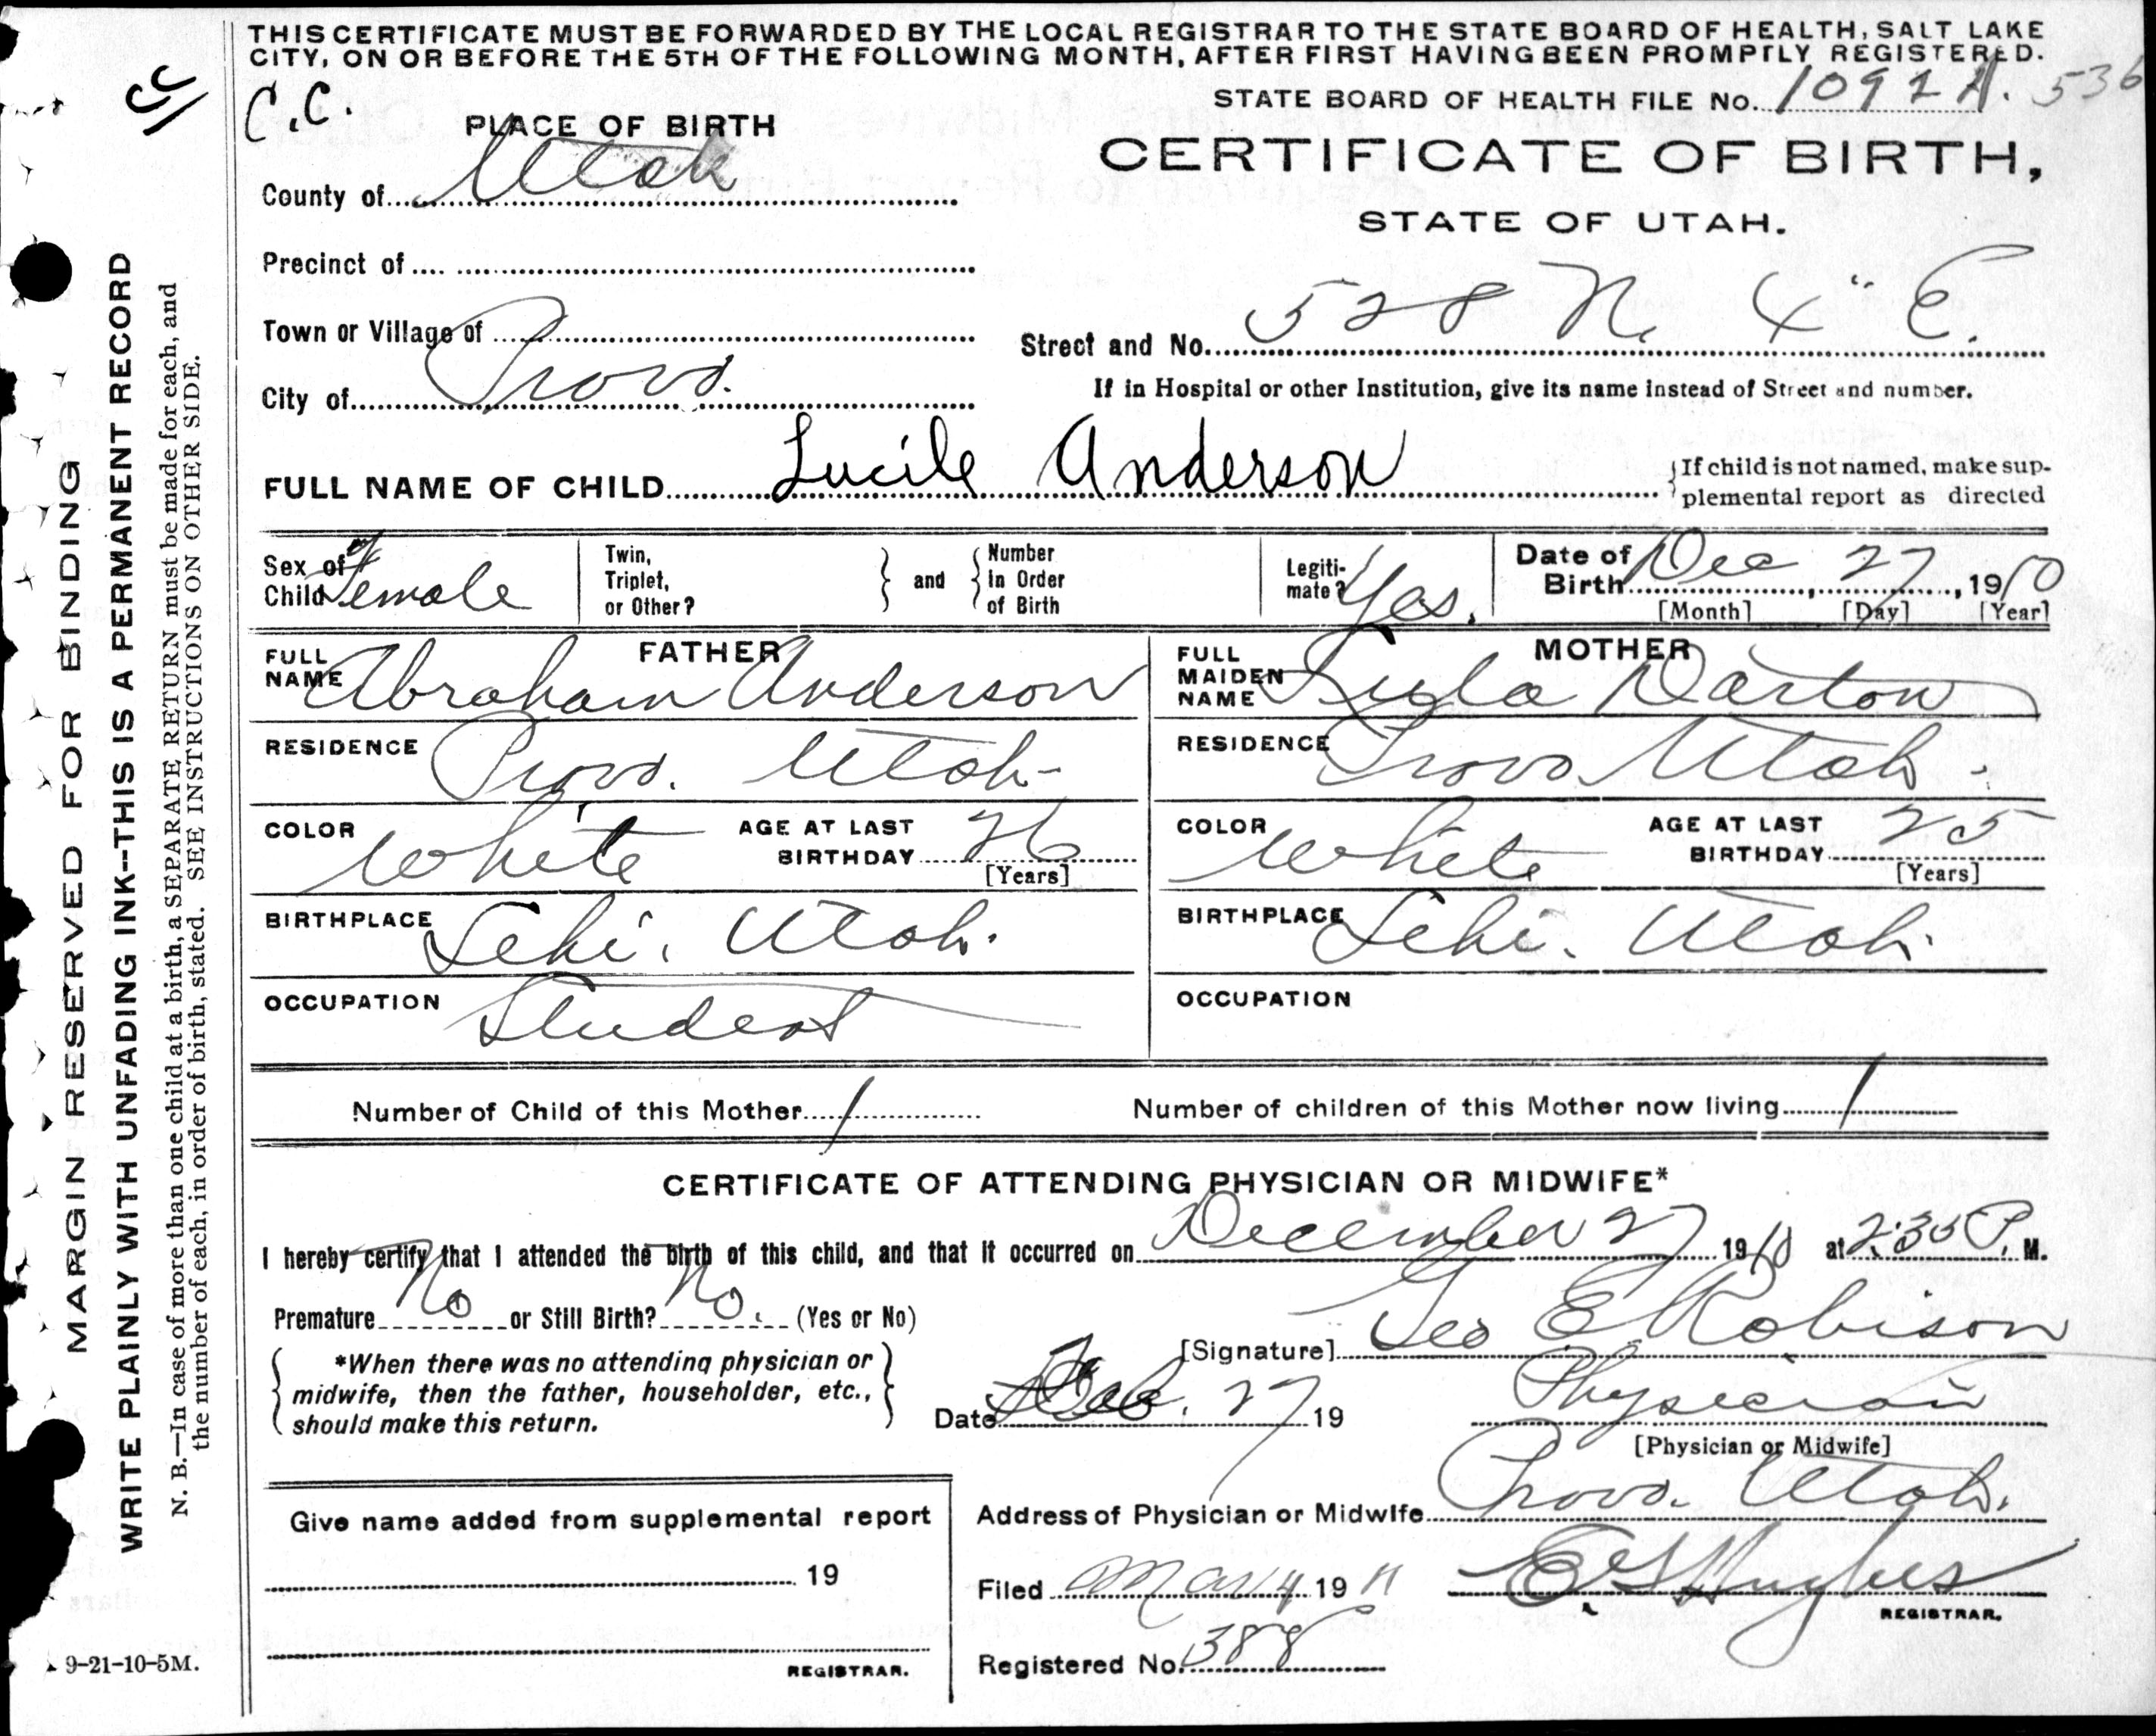 THIS CERTIFICATE MUST BE FORWARDED BY THE LOCAL REGISTRAR TO THE STATE BOARD OF HEALTH, SALT LAKE
CITY, ON OR BEFORE THE 5TH OF THE FOLLOWING MONTH, AFTER FIRST HAVING BEEN PROMPTLY REGISTERED.
CC
C.C.
STATE BOARD OF HEALTH FILE No. 536
PLACE OF BIRTH
CERTIFICATE OF BIRTH,
County of Utah
STATE OF UTAH.
Precinct of
Town or Village of
Street and No. 528 N. 4" E.
City of Provo.
If in Hospital or other Institution, give its name instead of Street and number.
FULL NAME OF CHILD Lucile Anderson
If child is not named, make sup-
plemental report as directed
Sex of Child Female
Twin, Triplet, or Other?
and
Number in Order of Birth
Legiti-mate? Yes.
Date of Birth Dec 27, 1910
[Month] [Day] [Year]
FATHER
FULL NAME Abraham Anderson
RESIDENCE Provo. Utah
COLOR White AGE AT LAST BIRTHDAY 26
[Years]
BIRTHPLACE Lehi. Utah.
OCCUPATION Student
MOTHER
FULL MAIDEN NAME Darton
RESIDENCE Provo Utah.
COLOR White AGE AT LAST BIRTHDAY 25
[Years]
BIRTHPLACE Lehi. Utah.
OCCUPATION
Number of Child of this Mother 1
Number of children of this Mother now living 1
CERTIFICATE OF ATTENDING PHYSICIAN OR MIDWIFE*
I hereby certify that I attended the birth of this child, and that it occurred on December 27 1910 at 2:35 P. M.
Premature No or Still Birth? No. (Yes or No)
[Signature] Geo E Robison
*When there was no attending physician or
midwife, then the father, householder, etc.,
should make this return.
Date Feb. 27 19
Physician
[Physician or Midwife]
Address of Physician or Midwife Provo. Utah.
Give name added from supplemental report
19
REGISTRAR.
Filed Mar 4 1911 Hughes
REGISTRAR.
Registered No. 388
9-21-10-5M.
MARGIN RESERVED FOR BINDING
WRITE PLAINLY WITH UNFADING INK--THIS IS A PERMANENT RECORD
N. B.—In case of more than one child at a birth, a SEPARATE RETURN must be made for each, and
the number of each, in order of birth, stated. SEE INSTRUCTIONS ON OTHER SIDE.